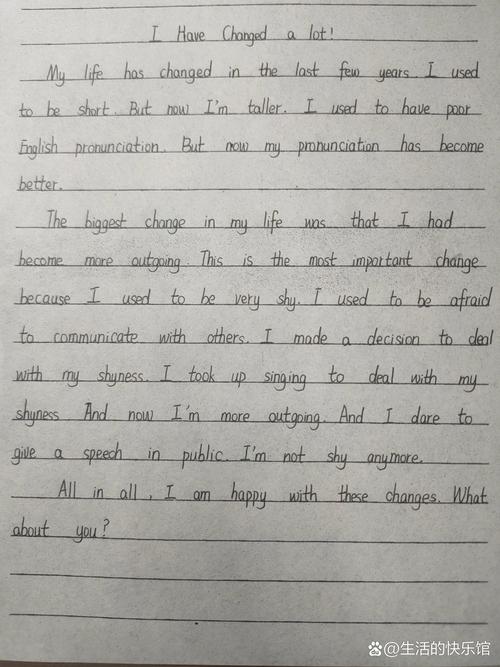 I Have Changed a lot!
My life has changed in the last few years. I used
to be short. But now I'm taller. I used to have poor
English pronunciation. But now my pronunciation has become
better.
The biggest change in my life was that I had
become more outgoing. This is the most important change
because I used to be very shy. I used to be afraid
to communicate with others. I made a decision to deal
with my shyness. I took up singing to deal with my
shyness. And now I'm more outgoing. And I dare to
give a speech in public. I'm not shy anymore.
All in all, I am happy with these changes. What
about you?
@生活的快乐馆